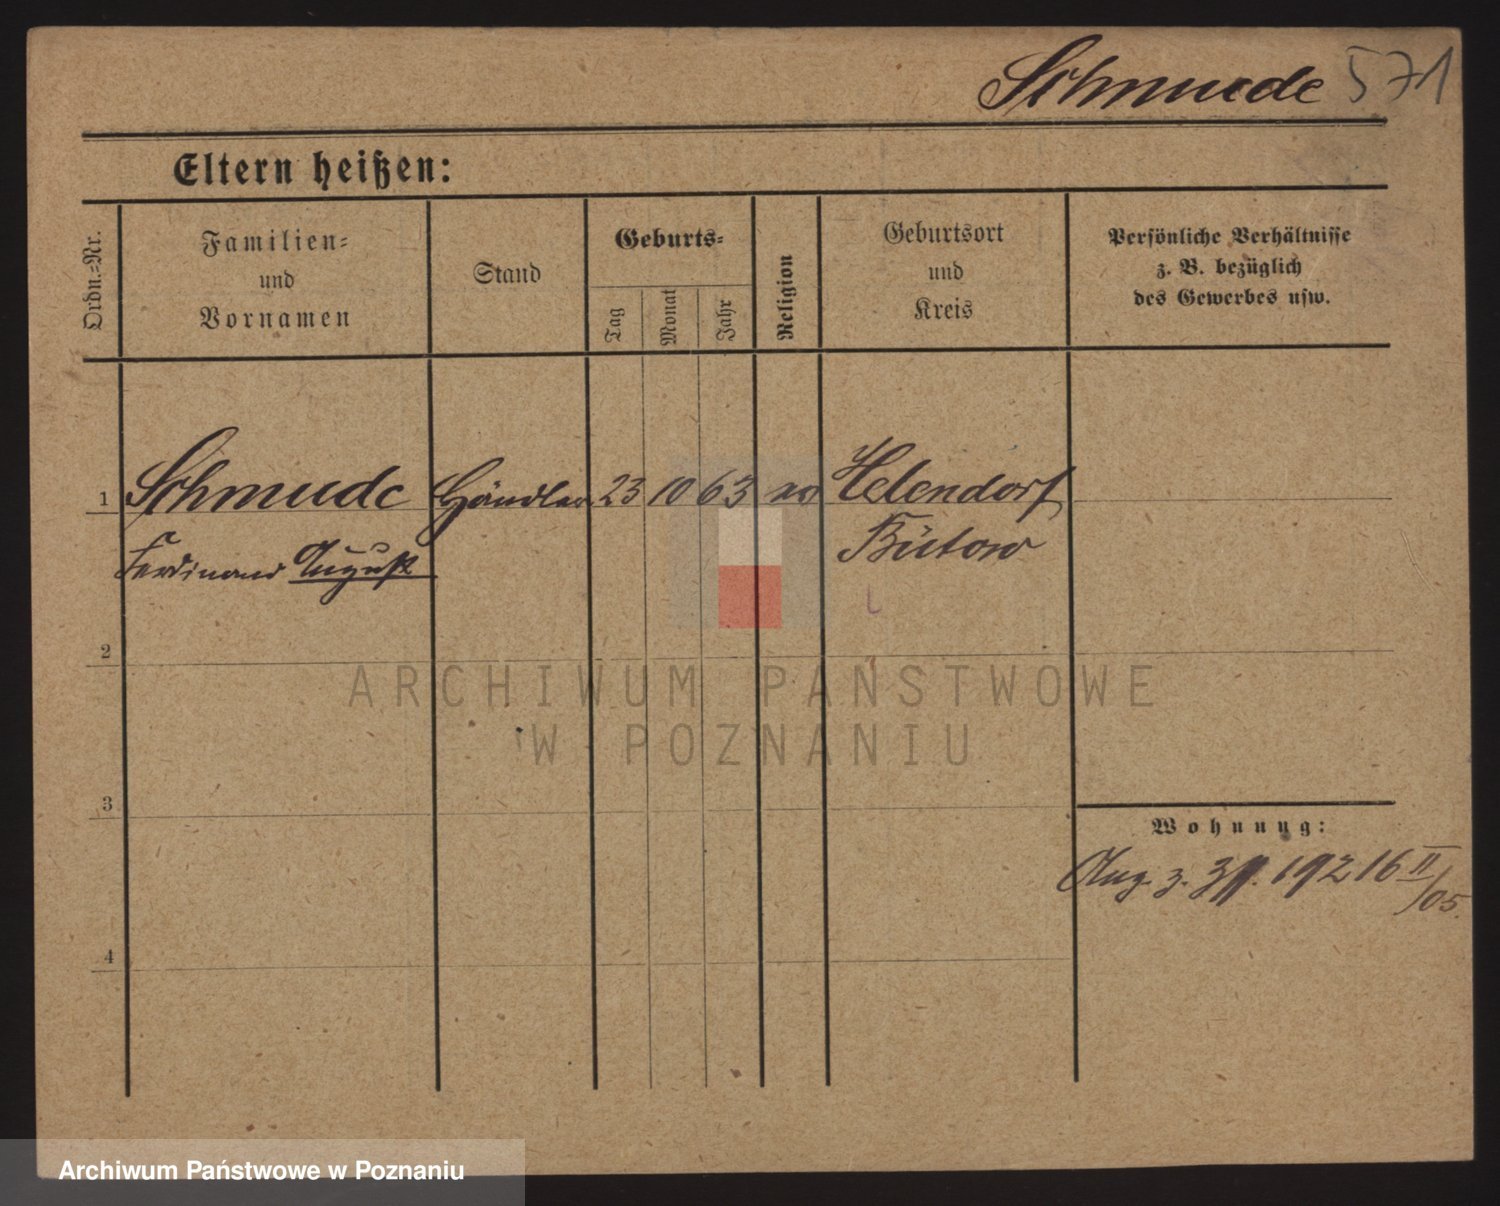 Schmude 571
Eltern heißen:
Ordn.-Nr.
Familien-
und
Vornamen
Stand
Geburts-
Tag
Monat
Jahr
Religion
Geburtsort
und
Kreis
Persönliche Verhältnisse
z. B. bezüglich
des Gewerbes usw.
1 Schmude Händler 23 10 63 Helendorf
Ferdinand August Bütow
2
ARCHIWUM PAŃSTWOWE
W POZNANIU
3
Wohnung:
Ang. z. 192 16 II/05.
4
Archiwum Państwowe w Poznaniu